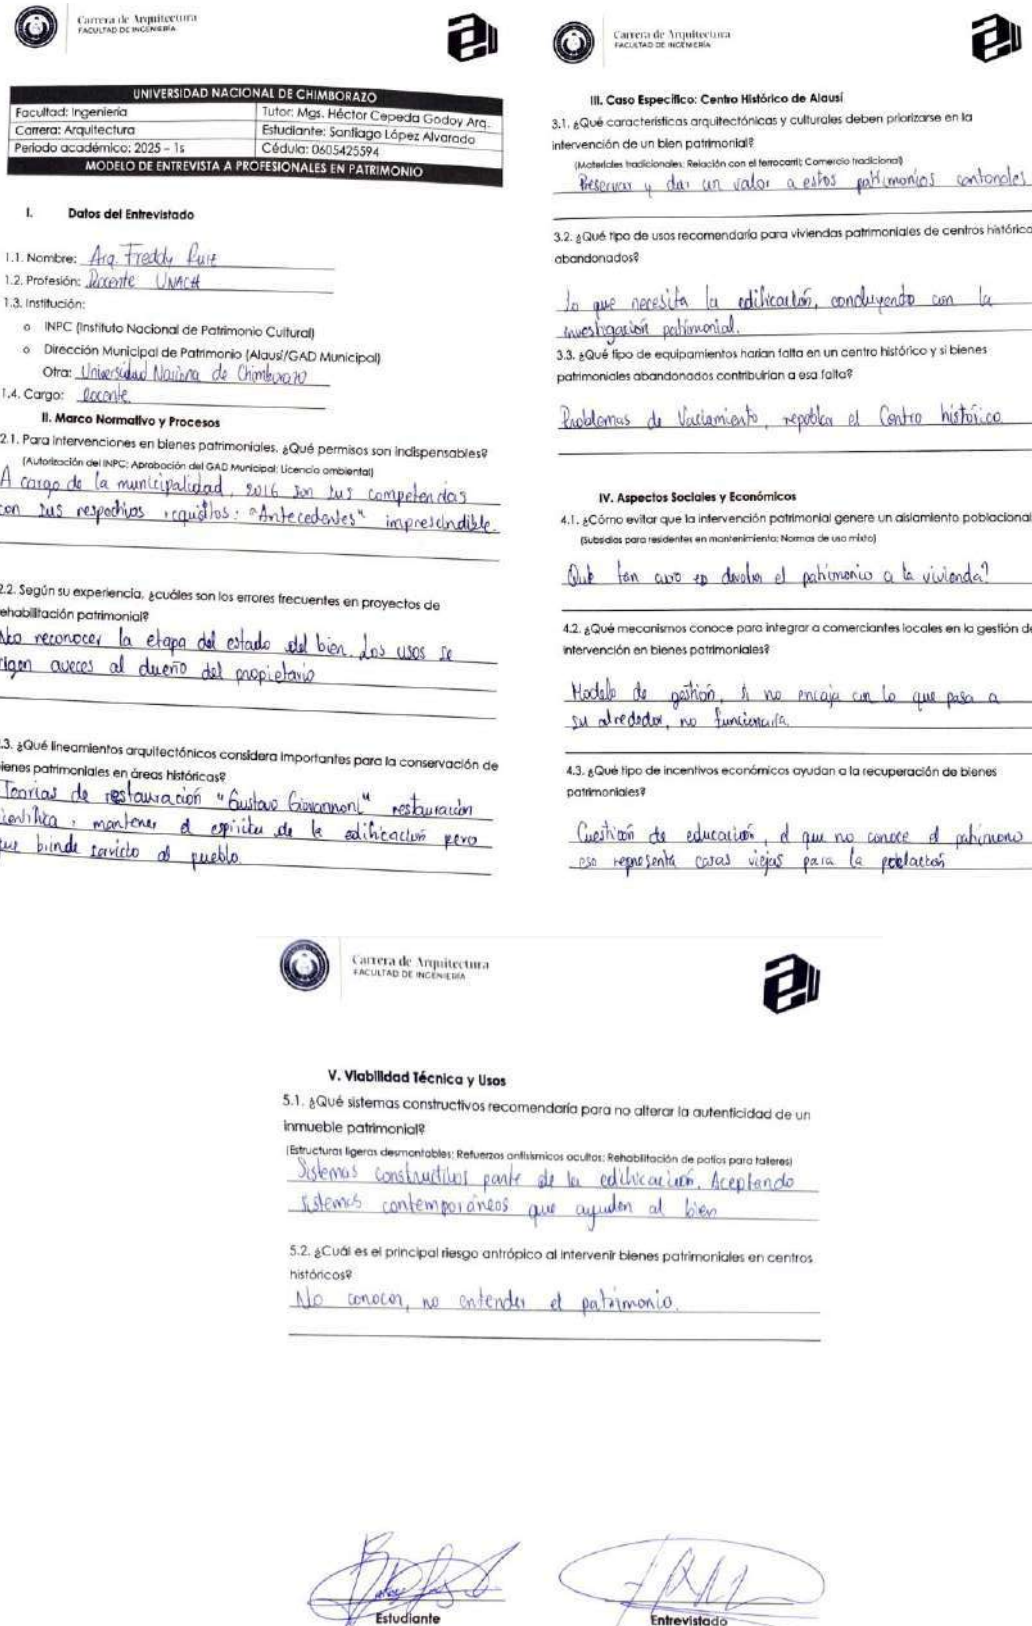 Carrera de Arquitectura
FACULTAD DE INGENIERÍA
UNIVERSIDAD NACIONAL DE CHIMBORAZO
Facultad: Ingeniería
Tutor: Mgs. Héctor Cepeda Godoy Arq.
Carrera: Arquitectura
Estudiante: Santiago López Alvarado
Periodo académico: 2025 – 1s
Cédula: 0605425594
MODELO DE ENTREVISTA A PROFESIONALES EN PATRIMONIO
I. Datos del Entrevistado
1.1. Nombre: Arq. Freddy Ruiz
1.2. Profesión: Docente UNACH
1.3. Institución:
o INPC (Instituto Nacional de Patrimonio Cultural)
o Dirección Municipal de Patrimonio (Alausí/GAD Municipal)
Otra: Universidad Naciona de Chimborazo
1.4. Cargo: Docente
II. Marco Normativo y Procesos
2.1. Para intervenciones en bienes patrimoniales, ¿Qué permisos son indispensables?
(Autorización del INPC; Aprobación del GAD Municipal; Licencia ambiental)
A cargo de la municipalidad, 2016 son sus competencias
con sus respectivos requisitos: "Antecedentes" imprescindible.
2.2. Según su experiencia, ¿cuáles son los errores frecuentes en proyectos de
rehabilitación patrimonial?
No reconocer la etapa del estado del bien. Los usos se
rigen aveces al dueño del propietario
.3. ¿Qué lineamientos arquitectónicos considera importantes para la conservación de
bienes patrimoniales en áreas históricas?
Teorías de restauración "Gustavo Giovannoni" restauración
científica, mantener el espíritu de la edificación pero
que brinde servicio al pueblo.
Carrera de Arquitectura
FACULTAD DE INGENIERÍA
III. Caso Específico: Centro Histórico de Alausí
3.1. ¿Qué características arquitectónicas y culturales deben priorizarse en la
intervención de un bien patrimonial?
(Materiales tradicionales; Relación con el ferrocarril; Comercio tradicional)
Preservar y dar un valor a estos patrimonios cantonales
3.2. ¿Qué tipo de usos recomendaría para viviendas patrimoniales de centros histórico
abandonados?
lo que necesita la edificación, concluyendo con la
investigación patrimonial.
3.3. ¿Qué tipo de equipamientos harían falta en un centro histórico y si bienes
patrimoniales abandonados contribuirían a esa falta?
Problemas de Vaciamiento, repoblar el Centro histórico
IV. Aspectos Sociales y Económicos
4.1. ¿Cómo evitar que la intervención patrimonial genere un aislamiento poblacional
(Subsidios para residentes en mantenimiento; Normas de uso mixto)
Qué tan caro es devolver el patrimonio a la vivienda?
4.2. ¿Qué mecanismos conoce para integrar a comerciantes locales en la gestión de
intervención en bienes patrimoniales?
Modelo de gestión, si no encaja con lo que pasa a
su alrededor, no funcionaría.
4.3. ¿Qué tipo de incentivos económicos ayudan a la recuperación de bienes
patrimoniales?
Cuestión de educación, el que no conoce el patrimonio
eso representa casas viejas para la población
Carrera de Arquitectura
FACULTAD DE INGENIERÍA
V. Viabilidad Técnica y Usos
5.1. ¿Qué sistemas constructivos recomendaría para no alterar la autenticidad de un
inmueble patrimonial?
(Estructuras ligeras desmontables; Refuerzos antisísmicos ocultos; Rehabilitación de patios para talleres)
Sistemas constructivos parte de la edificación. Aceptando
sistemas contemporáneos que ayuden al bien
5.2. ¿Cuál es el principal riesgo antrópico al intervenir bienes patrimoniales en centros
históricos?
No conocer, no entender el patrimonio.
Estudiante
Entrevistado